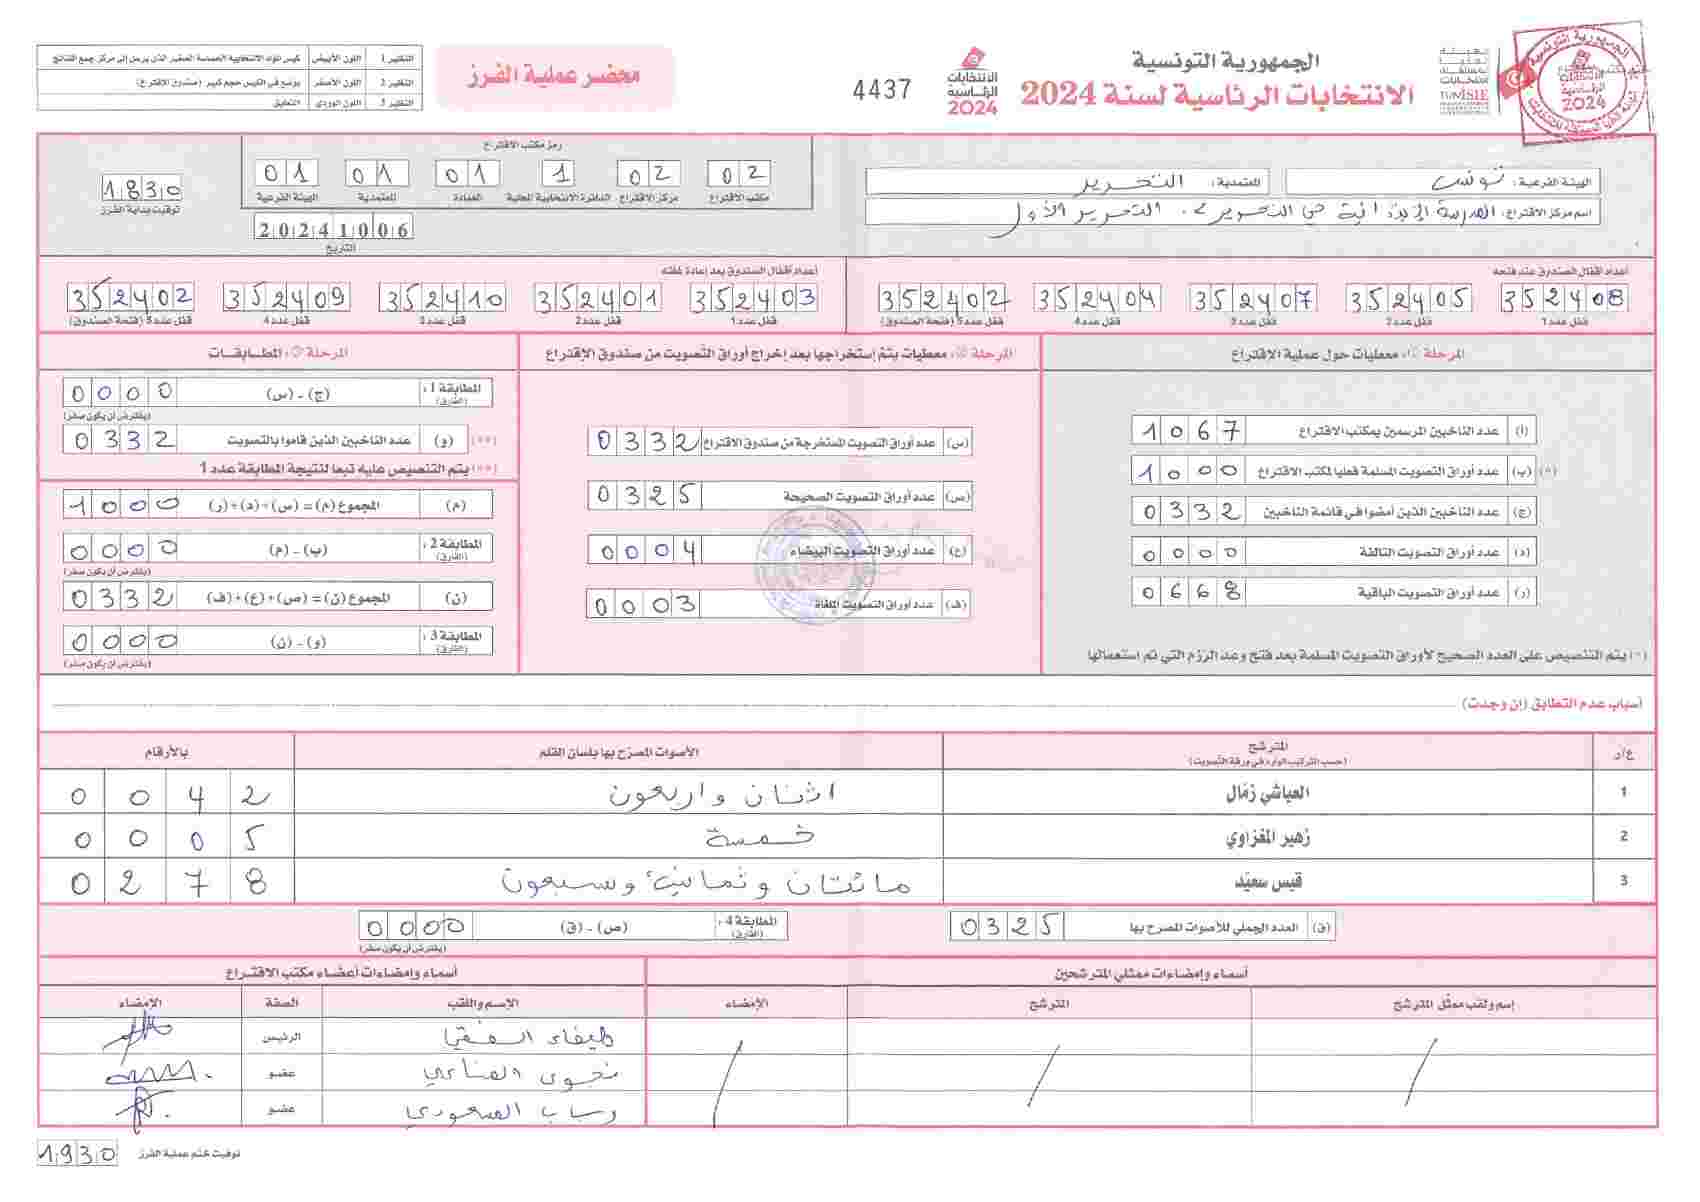 الجمهورية التونسية
الانتخابات الرئاسية لسنة 2024
الانتخابات
الرئاسية
2024
4437
محضر عملية الفرز
النظير 1 اللون الأبيض
النظير 2 اللون الأصفر يوضع في الكيس حجم كبير (صندوق الاقتراع)
النظير 3 اللون الوردي التعليق
الهيئة الفرعية: تونس
المعتمدية: التحرير
اسم مركز الاقتراع: المدرسة الإبتدائية حي التحرير 2. التحرير الأول
رمز مكتب الاقتراع
02 02 1 01 01 01
مكتب الاقتراع مركز الاقتراع الدائرة الانتخابية المحلية العمادة المعتمدية الهيئة الفرعية
20241006
التاريخ
1830
توقيت بداية الفرز
أعداد أقفال الصندوق عند فتحه
352408 352405 352407 352404 352402
قفل عدد1 قفل عدد2 قفل عدد3 قفل عدد4 قفل عدد5 (فتحة الصندوق)
أعداد أقفال الصندوق بعد إعادة غلقه
352403 352401 352410 352409 352402
قفل عدد1 قفل عدد2 قفل عدد3 قفل عدد4 قفل عدد5 (فتحة الصندوق)
المرحلة 1: معطيات حول عملية الاقتراع
(أ) عدد الناخبين المرسمين بمكتب الاقتراع 1067
(*) (ب) عدد أوراق التصويت المسلمة فعليا لمكتب الاقتراع 1000
(ج) عدد الناخبين الذين أمضوا في قائمة الناخبين 0332
(د) عدد أوراق التصويت التالفة 0000
(ر) عدد أوراق التصويت الباقية 0668
(*) يتم التنصيص على العدد الصحيح لأوراق التصويت المسلمة بعد فتح وعد الرزم التي تم استعمالها
المرحلة 2: معطيات يتم إستخراجها بعد إخراج أوراق التصويت من صندوق الإقتراع
(س) عدد أوراق التصويت المستخرجة من صندوق الاقتراع 0332
(ص) عدد أوراق التصويت الصحيحة 0325
(ع) عدد أوراق التصويت البيضاء 0004
(ف) عدد أوراق التصويت الملغاة 0003
المرحلة 3: المطابقات
المطابقة 1: (الفارق) (ج) - (س) 0000
(يفترض أن يكون صفر)
(**) (و) عدد الناخبين الذين قاموا بالتصويت 0332
(**) يتم التنصيص عليه تبعا لنتيجة المطابقة عدد 1
(م) المجموع (م) = (س)+(د)+(ر) 1000
المطابقة 2: (الفارق) (ب) - (م) 0000
(يفترض أن يكون صفر)
(ن) المجموع (ن) = (ص)+(ع)+(ف) 0332
المطابقة 3: (الفارق) (و) - (ن) 0000
(يفترض أن يكون صفر)
أسباب عدم التطابق (إن وجدت)
ع/ر المترشح الأصوات المصرح بها بلسان القلم بالأرقام
(حسب الترتيب الوارد في ورقة التصويت)
1 العياشي زمّال اثنان واربعون 0042
2 زهير المغزاوي خمسة 0005
3 قيس سعيّد مائتان وثمانية وسبعون 0278
(ق) العدد الجملي للأصوات المصرح بها 0325
المطابقة 4: (الفارق) (ص) - (ق) 0000
(يفترض أن يكون صفر)
أسماء وإمضاءات ممثلي المترشحين
إسم ولقب ممثّل المترشح المترشح الإمضاء
أسماء وإمضاءات أعضاء مكتب الاقتراع
الإسم واللقب الصفة الإمضاء
هيفاء الرئيس
نجوى عضو
رباب عضو
توقيت ختم عملية الفرز 1930